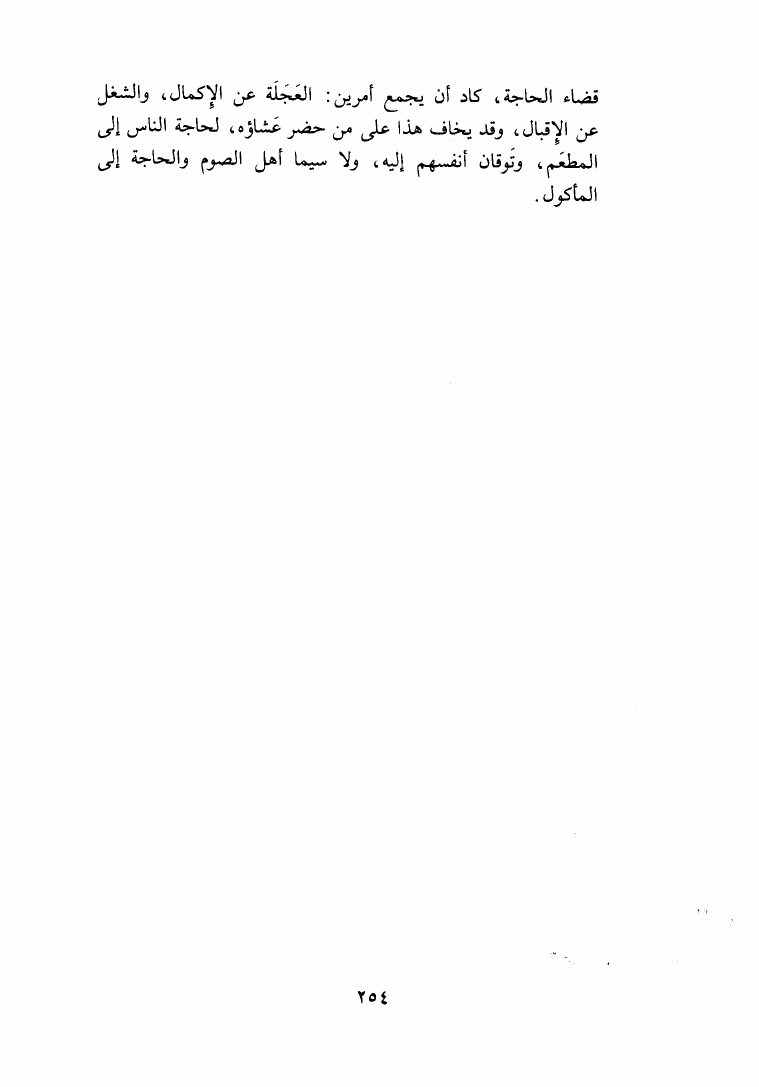 قضاء الحاجة، كاد أن يجمع أمرين: العَجَلَة عن الإكمال، والشغل
عن الإقبال، وقد يخاف هذا على من حضر عَشاؤه، لحاجة الناس إلى
المطعَم، وتَوقان أنفسهم إليه، ولا سيما أهل الصوم والحاجة إلى
المأكول.
٢٥٤